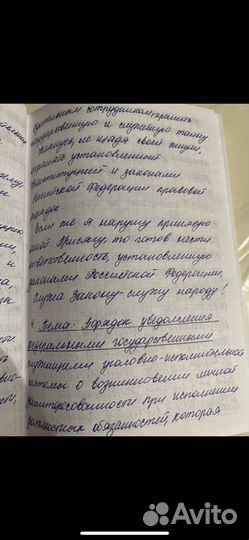 сотрудником, хранить
государственную и служебную тайну
не щадя своей жизни,
охранять установленный
Конституцией и законами
Российской Федерации правовой
порядок.
Если же я нарушу принятую
мной Присягу, то готов нести
ответственность, установленную
законами Российской Федерации.
Служа Закону - служу народу!
Тема: Порядок уведомления
федеральными государственными
служащими уголовно-исполнительной
системы о возникновении личной
заинтересованности при исполнении
должностных обязанностей, которая
Avito